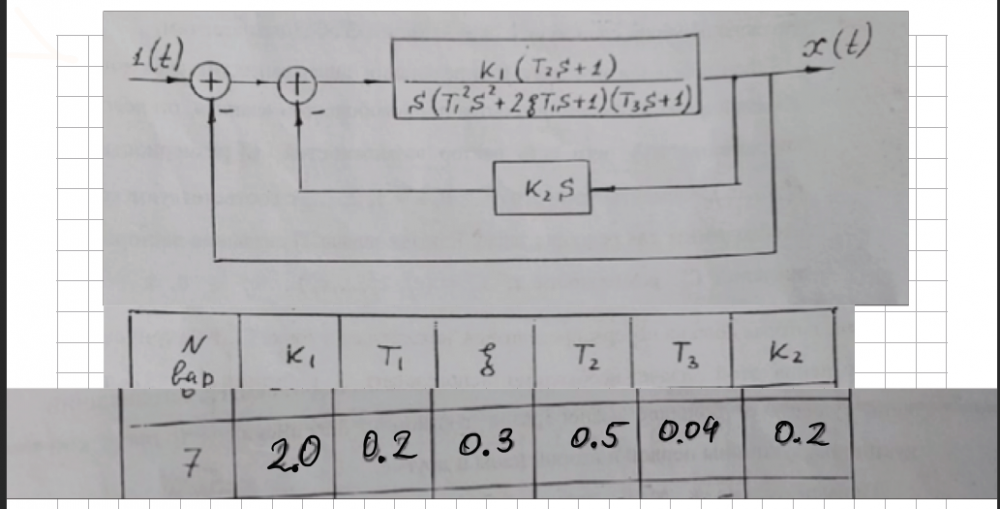 1(t)
x(t)
K₁(T₂S+1)
S(T₁²S²+2ξT₁S+1)(T₃S+1)
K₂S
N вар K₁ T₁ ξ T₂ T₃ K₂
7 2.0 0.2 0.3 0.5 0.04 0.2